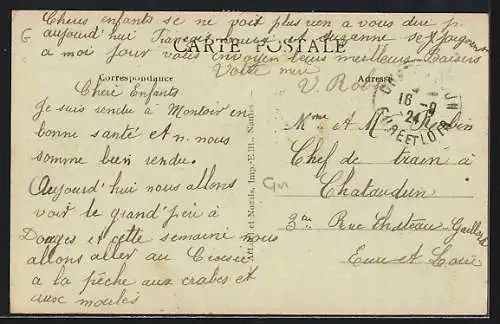 Chères enfants je ne voit plus rien a vous dire p
aujourd'hui Francois Louise et Suzanne se joignent
a moi pour vous envoyer leurs meilleurs Baisers
Votre mère V. Robin
CARTE POSTALE
Correspondance
Cheré Enfants
Je suis rendu à Montoir en
bonne santé et n. nous
somme bien rendu.
Aujourd'hui nous allons
voir le grand'père à
Donges et cette semaine nous
allons aller au Croisic
a la pêche aux crabes et
aux moules
et Nozais, Imp.-Edit., Nantes
Adresse
16 - 9
24
EURE ET LOIR
Mme et Mr Robin
Chef de train à
Chataudun
3 Rue Chateau-Gaillard
Eure et Loir